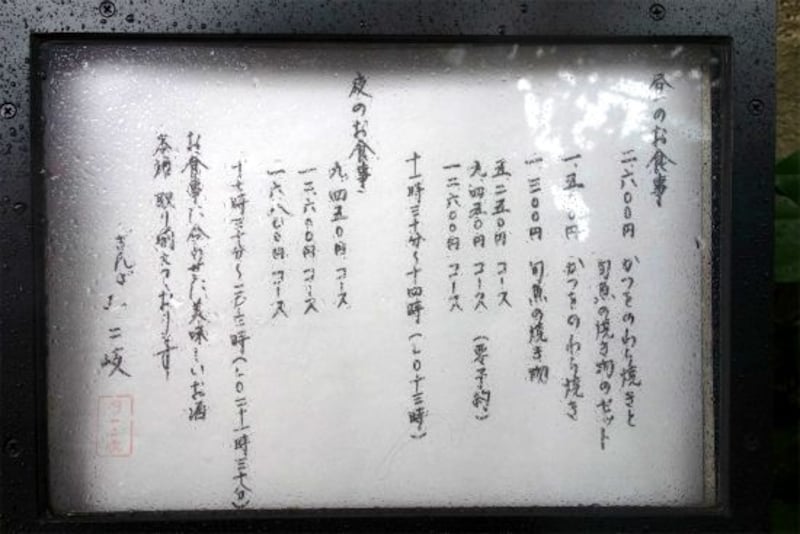 昼のお食事
二、六〇〇円 かつをのわら焼きと
旬魚の焼き物のセット
一、五〇〇円 かつをのわら焼き
一、三〇〇円 旬魚の焼き物
五、二五〇円 コース
九、四五〇円 コース (要予約)
一二、六〇〇円 コース
十一時三十分〜十四時(L.O十三時)
夜のお食事
九、四五〇円 コース
一二、六〇〇円 コース
一六、八〇〇円 コース
十七時三十分〜二十三時(L.O二十一時三十分)
お食事に合わせた美味しいお酒
多種取り揃えております
ぎんざ 二岐